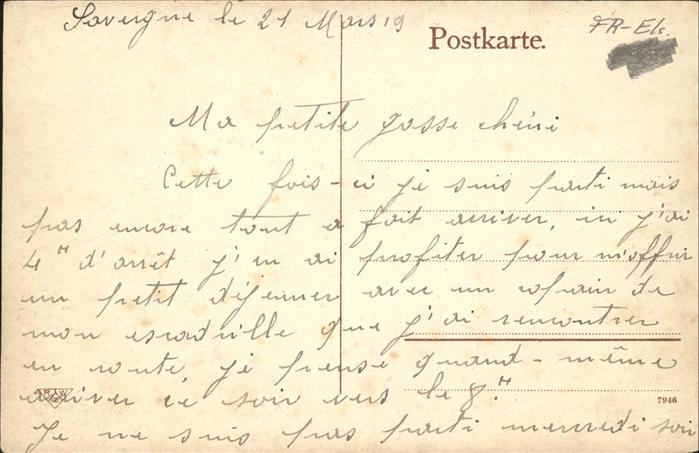 Savergne le 21 Mars 19
Postkarte.
FR-Els.
Ma petite gosse chéri
Cette fois-ci je suis parti mais
pas encore tout a fait arriver, ici j'ai
4 H d'arrêt j'en ai profiter pour m'offrir
un petit déjeuner avec un copain de
mon escadrille que j'ai rencontrer
en route, je pense quand-même
arriver ce soir vers le 8 H
7946
Je ne suis pas parti mercredi soir